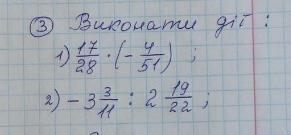 ③ Виконати дії :
1) 17/28 · (- 4/51) ;
2) - 3 3/11 : 2 19/22 ;